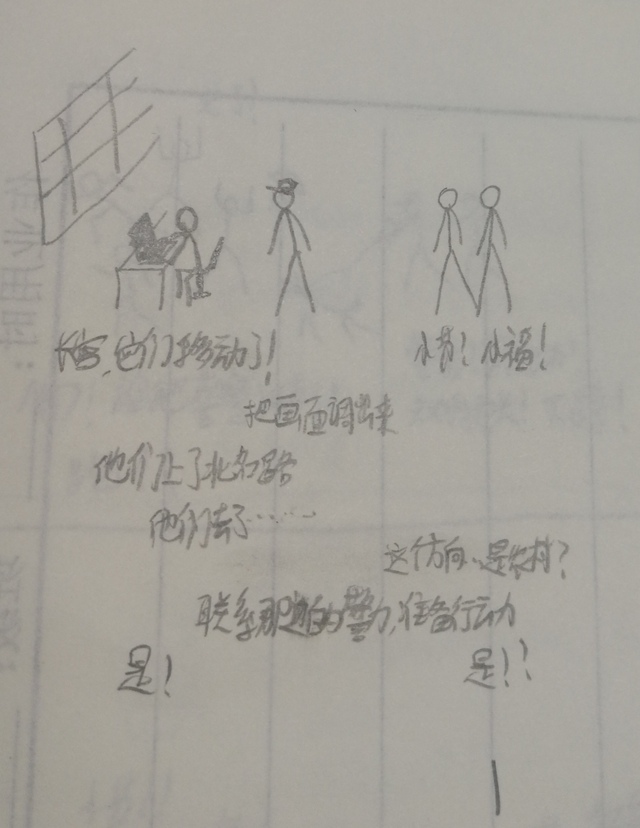 长官，他们移动了！
小苏！小福！
把画面调出来
他们上了北环路
他们去了……
这个方向..是农村？
联系那边的警力，准备行动
是！
是！！